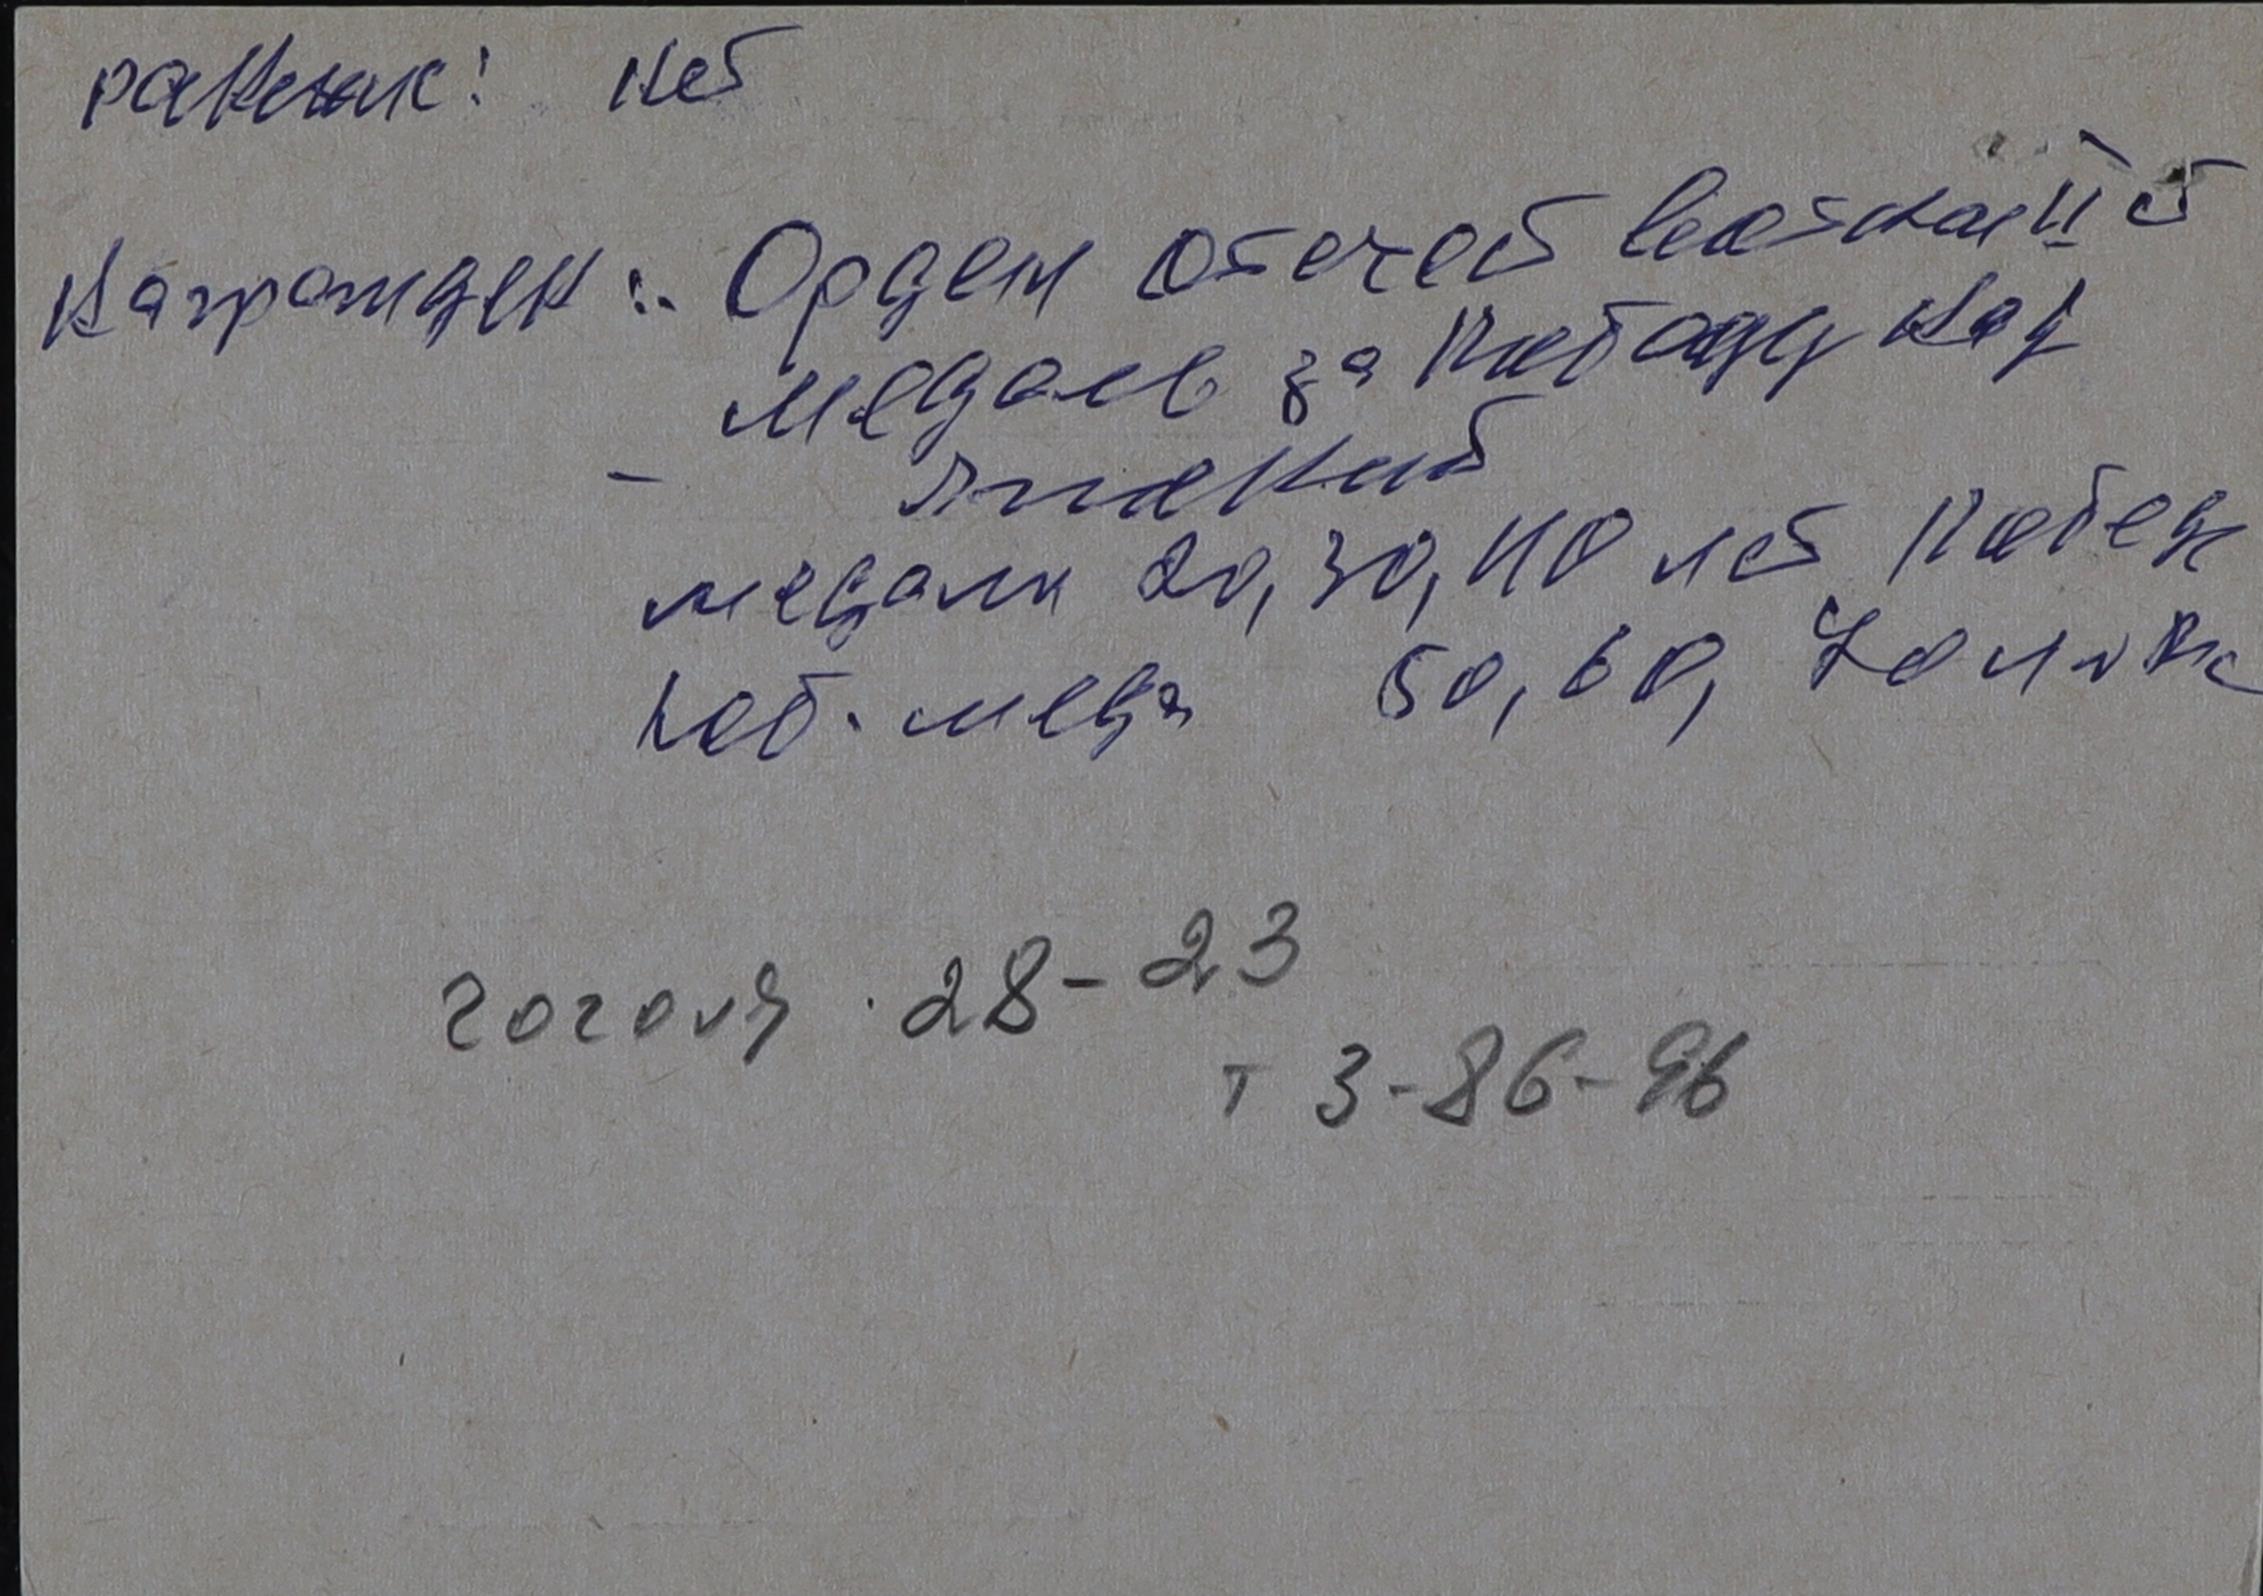 ранения: нет
Награжден:. Орден отечеств войны II ст
медаль за Победу над
- Японией
медали 20, 30, 40 лет Побед
юб. меда 50, 60, 70 лл Вс
гоголя. 28-23
т 3-86-96